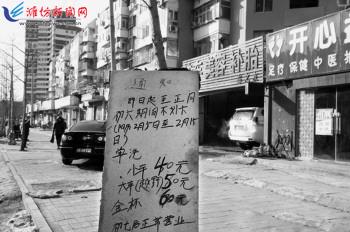 潍坊新闻网
通知
29日起至正月
初六期间不划卡
(阳历2月5日至2月15
日)
车洗
小车40元
大车(越野)50元
金杯 60元
初七后正常营业
美容补胎
开心
足疗保健中医